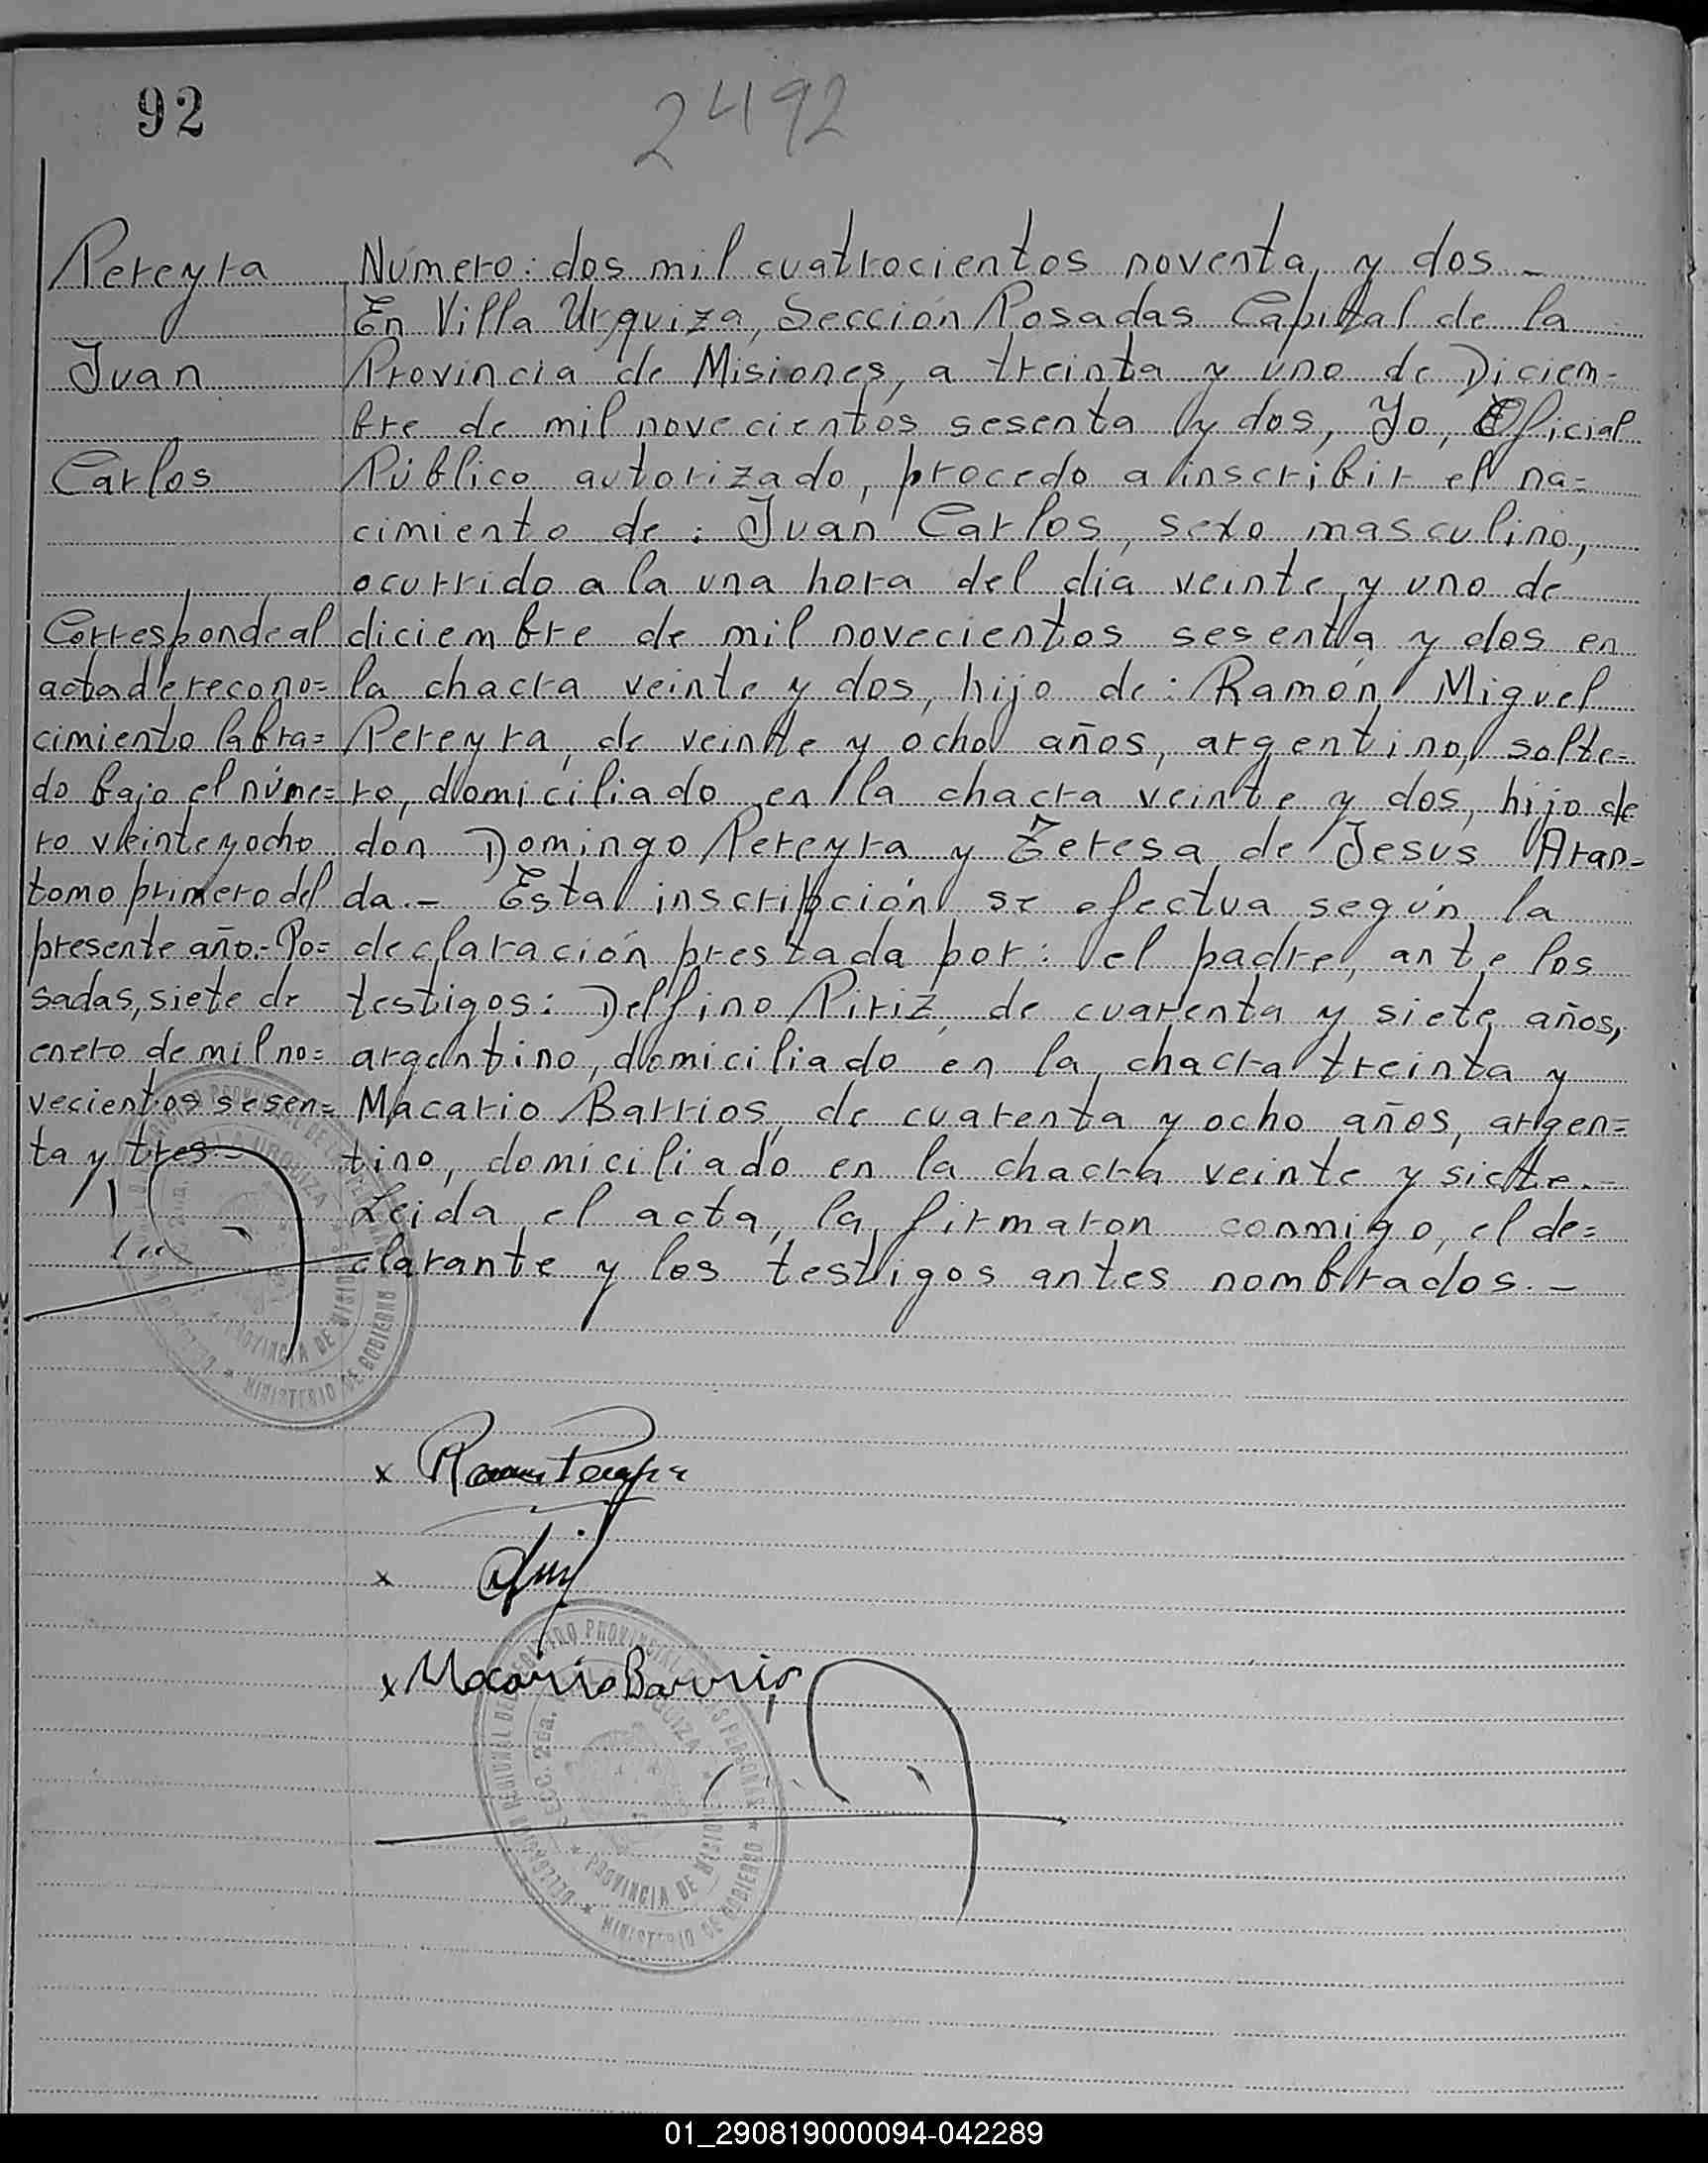 92
2492
Pereyra
Juan
Carlos
Número: dos mil cuatrocientos noventa y dos -
En Villa Urquiza, Sección Posadas Capital de la
Provincia de Misiones, a treinta y uno de Diciem=
bre de mil novecientos sesenta y dos, Yo, Oficial
Público autorizado, procedo a inscribir el na=
cimiento de: Juan Carlos, sexo masculino,
ocurrido a la una hora del día veinte y uno de
diciembre de mil novecientos sesenta y dos en
la chacra veinte y dos, hijo de: Ramón Miguel
Pereyra, de veinte y ocho años, argentino, solte=
ro, domiciliado en la chacra veinte y dos, hijo de
don Domingo Pereyra y Teresa de Jesús Aran=
da.- Esta inscripción se efectua según la
declaración prestada por: el padre, ante los
testigos: Delfino Piriz, de cuarenta y siete años,
argentino, domiciliado en la chacra treinta y
Macario Barrios, de cuarenta y ocho años, argen=
tino, domiciliado en la chacra veinte y siete.-
Leida el acta, la firmaron conmigo, el de=
clarante y los testigos antes nombrados.-
Corresponde al
acta de recono=
cimiento labra=
do bajo el núme=
ro veinte y ocho
tomo primero del
presente año.- Po=
sadas, siete de
enero de mil no=
vecientos sesen=
ta y tres.-
PROVINCIA DE MISIONES
MINISTERIO DE GOBIERNO
x Ramon Pereyra
x
x Macario Barrios
SECC. 2da.
PROVINCIA DE MISIONES
MINISTERIO DE GOBIERNO
01_290819000094-042289